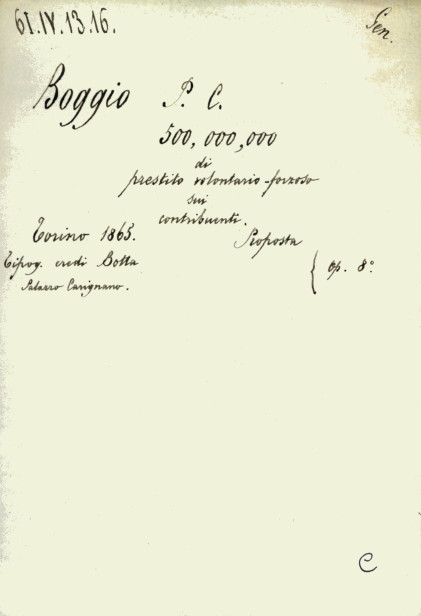 61.IV.13.16.
Gen.
Boggio P. C.
500,000,000
di
prestito volontario-forzoso
sui
contribuenti.
Proposta
Torino 1865.
Tipog. eredi Botta
Palazzo Carignano.
Op. 8°.
C